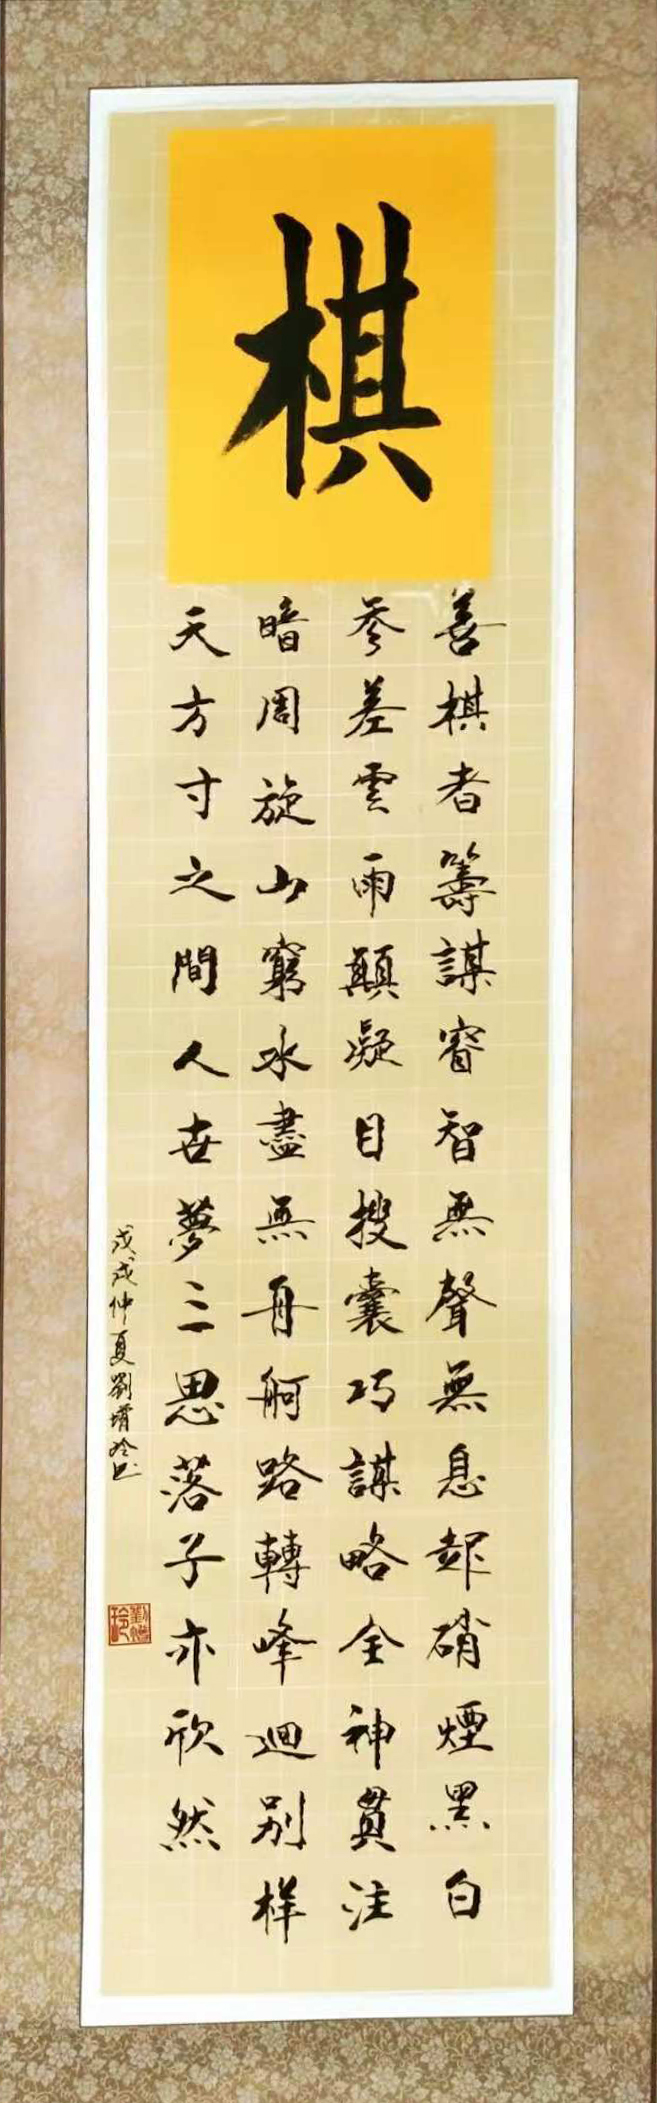 棋
善棋者籌謀睿智無聲無息起硝煙黑白
參差雲雨顛凝目搜囊巧謀略全神貫注
暗周旋山窮水盡無舟舸路轉峰迴別樣
天方寸之間人世夢三思落子亦欣然
戊戌仲夏劉增玲書